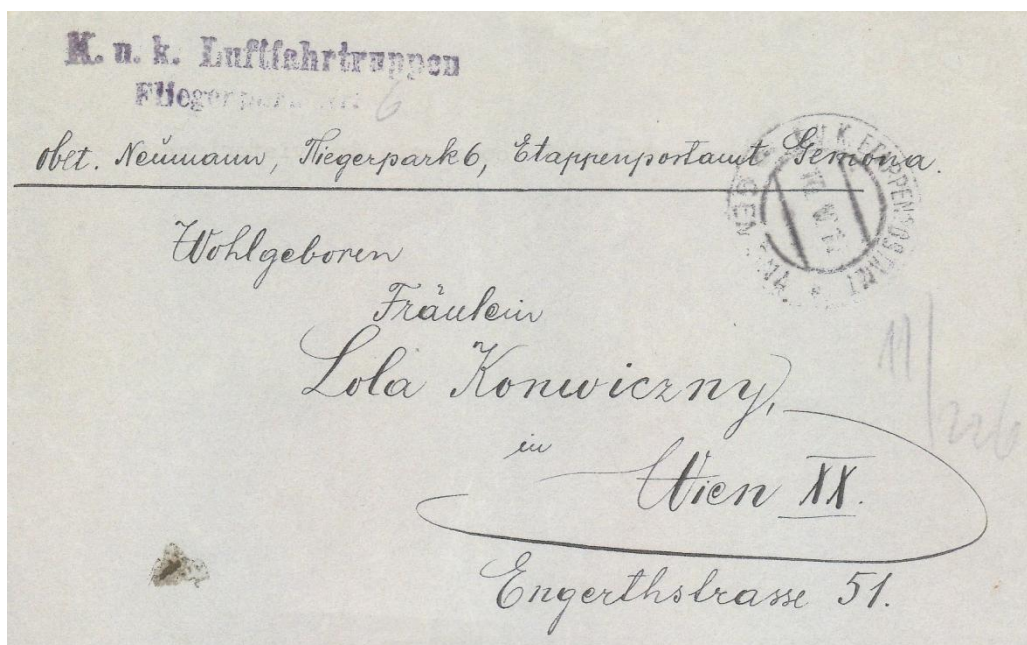 K. u. k. Luftfahrtruppen
6
Neumann, Fliegerpark 6, Etappenpostamt Gemona.
K.u.K. ETAPPENPOSTAMT
GEMONA
Wohlgeboren
Fräulein
Lola Konwiczny,
in
Wien XX.
Engerthstrasse 51.